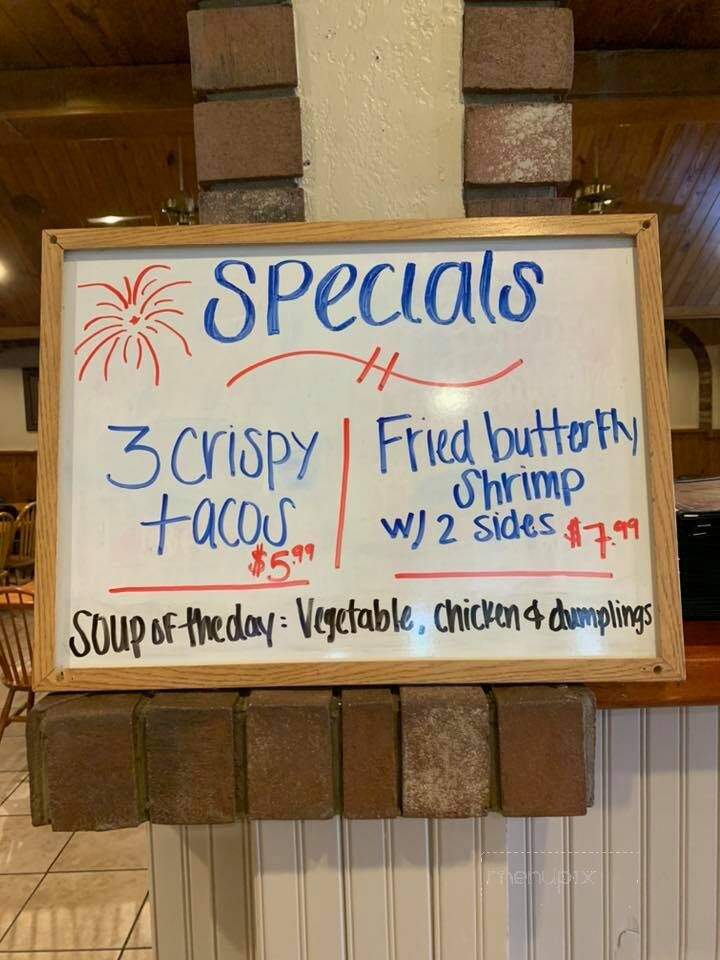 Specials
3 crispy
tacos
$5.99
Fried butterfly
Shrimp
w/ 2 sides $7.99
Soup of the day: Vegetable, chicken & dumplings
menupix